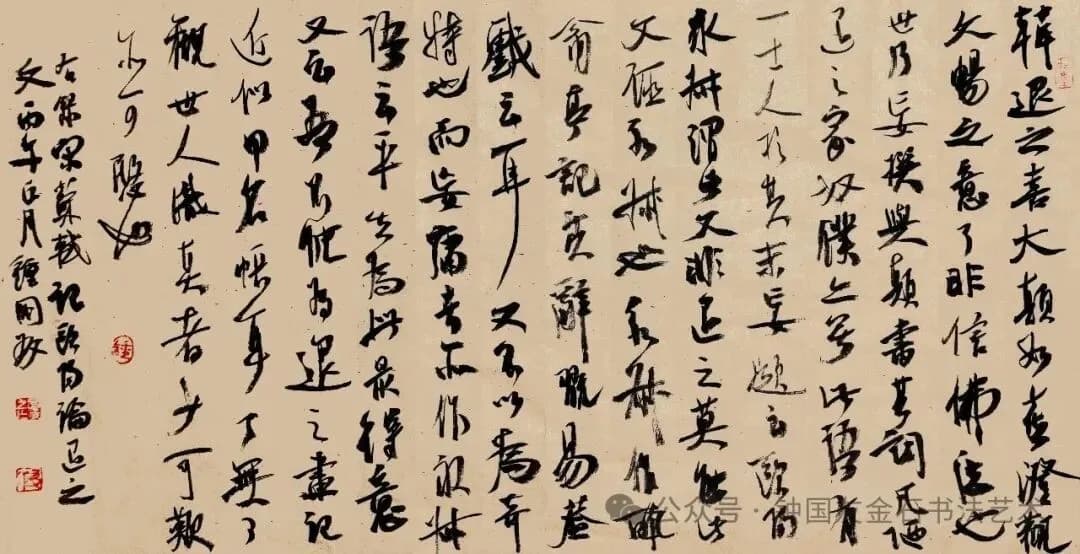 韓退之喜大顛如喜澄觀
文暢之意了非信佛法也
世乃妄撰與顛書其詞凡陋
退之家奴僕亦無此語有
一士人於其末妄題云歐陽
永叔謂此文非退之莫能此
又誣永叔也永叔作醉
翁亭記其辭玩易蓋
戲云耳又不以為奇
特也而妄庸者亦作永叔
語云平生為此最得意
又云吾不能為退之畫記
近似甲名帳耳了無可
觀世人識真者少可歎
亦可愍也
右錄宋蘇軾記歐陽論退之
文丙午正月鍾國友
公众号 · 钟国友金石书法艺术